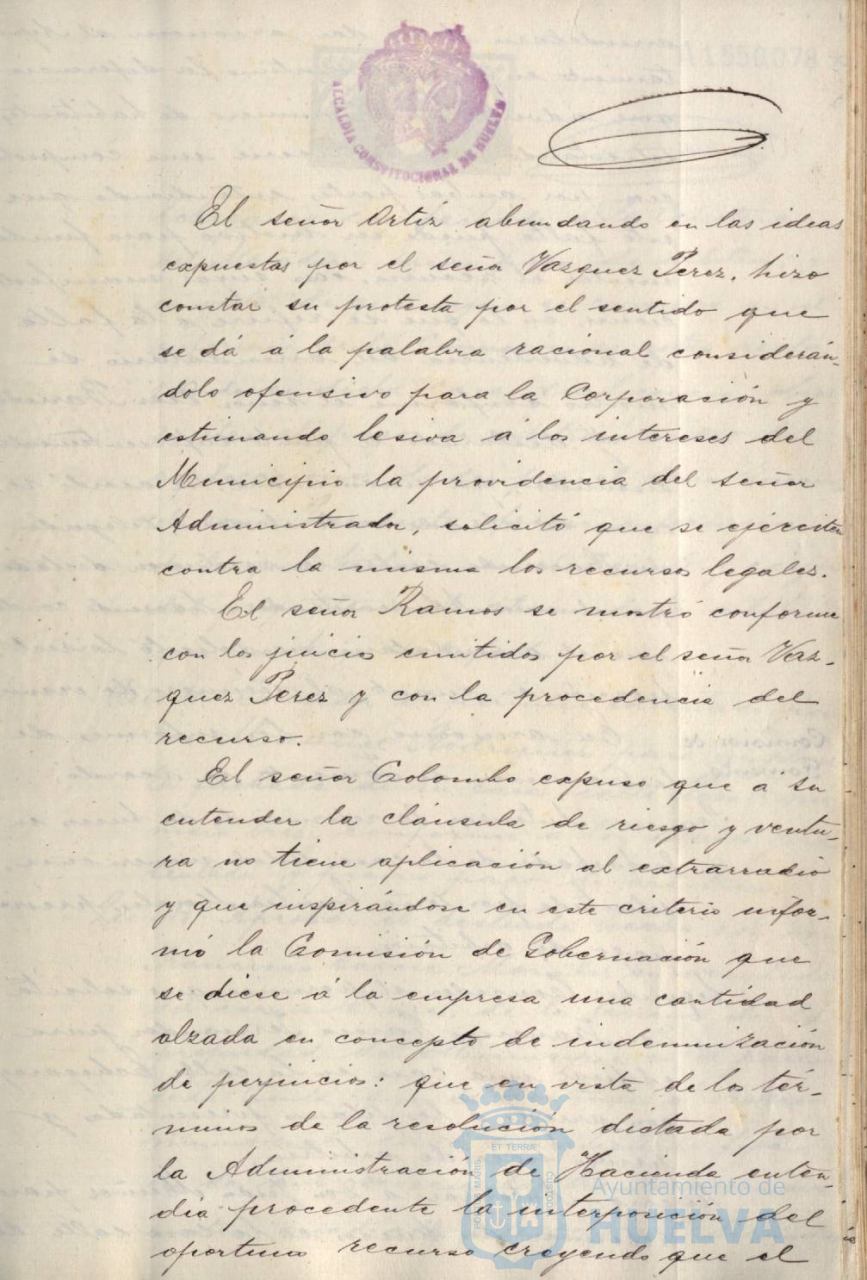 ALCALDIA CONSTITUCIONAL DE HUELVA
El señor Ortíz abundando en las ideas
expuestas por el señor Vazquez Perez, hizo
constar su protesta por el sentido que
se dá á la palabra racional considerán-
dolo ofensivo para la Corporación y
estimando lesiva á los intereses del
Municipio la providencia del señor
Administrador, solicitó que se ejerciten
contra la misma los recursos legales.
El señor Ramos se mostró conforme
con los juicios emitidos por el señor Vaz-
quez Perez y con la procedencia del
recurso.
El señor Colombo expuso que á su
entender la cláusula de riesgo y ventu-
ra no tiene aplicación al extrarradio
y que inspirándose en este criterio infor-
mó la Comisión de Gobernación que
se diese á la empresa una cantidad
alzada en concepto de indemnización
de perjuicios: que en vista de los tér-
minos de la resolución dictada por
la Administración de Hacienda enten-
día procedente la interposición del
oportuno recurso creyendo que el
PORTUS MARIS ET TERRÆ CUSTODIA
Ayuntamiento de
HUELVA